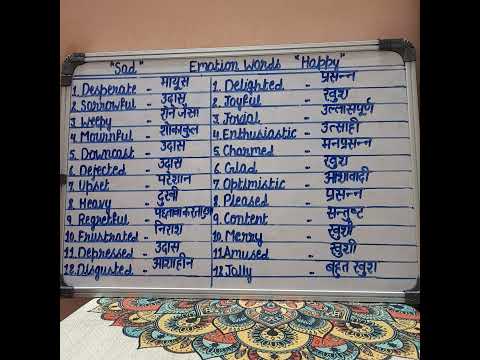 "Sad" Emotion Words "Happy"
1. Desperate - मायूस
2. Sorrowful - उदास
3. Weepy - रोने जैसा
4. Mournful - शोकाकुल
5. Downcast - उदास
6. Dejected - उदास
7. Upset - परेशान
8. Heavy - दुखी
9. Regretful - पछतावा करता हुआ
10. Frustrated - निराश
11. Depressed - उदास
12. Disgusted - आशाहीन
1. Delighted - प्रसन्न
2. Joyful - खुश
3. Jovial - उल्लासपूर्ण
4. Enthusiastic - उत्साही
5. Charmed - मनप्रसन्न
6. Glad - खुश
7. Optimistic - आशावादी
8. Pleased - प्रसन्न
9. Content - सन्तुष्ट
10. Merry - खुशी
11. Amused - खुशी
12. Jolly - बहुत खुश